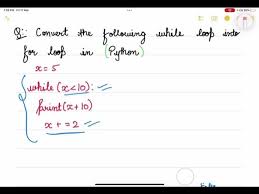 Q:- Convert the following while loop into
for loop in (Python)
x = 5
while (x<10):
print(x+10)
x + = 2